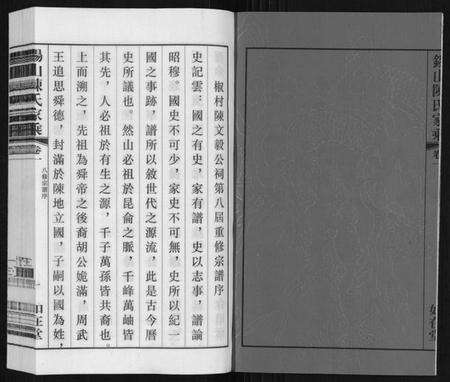 錫山陳氏家乘 卷一
椒村陳文毅公祠第八屆重修宗譜序
史記雲：國之有史，家有譜，史以志事，譜論
昭穆。國史不可少，家史不可無，史所以紀一
國之事跡，譜所以敘世代之源流，此是古今曆
史所議也。然山必祖於昆侖之脈，千峰萬岫皆
其先，人必祖於有生之源，千子萬孫皆共裔也。
上而溯之，先祖為舜帝之後裔胡公媯滿，周武
王追思舜德，封滿於陳地立國，子嗣以國為姓，
錫山陳氏家乘 卷一
八修宗譜序